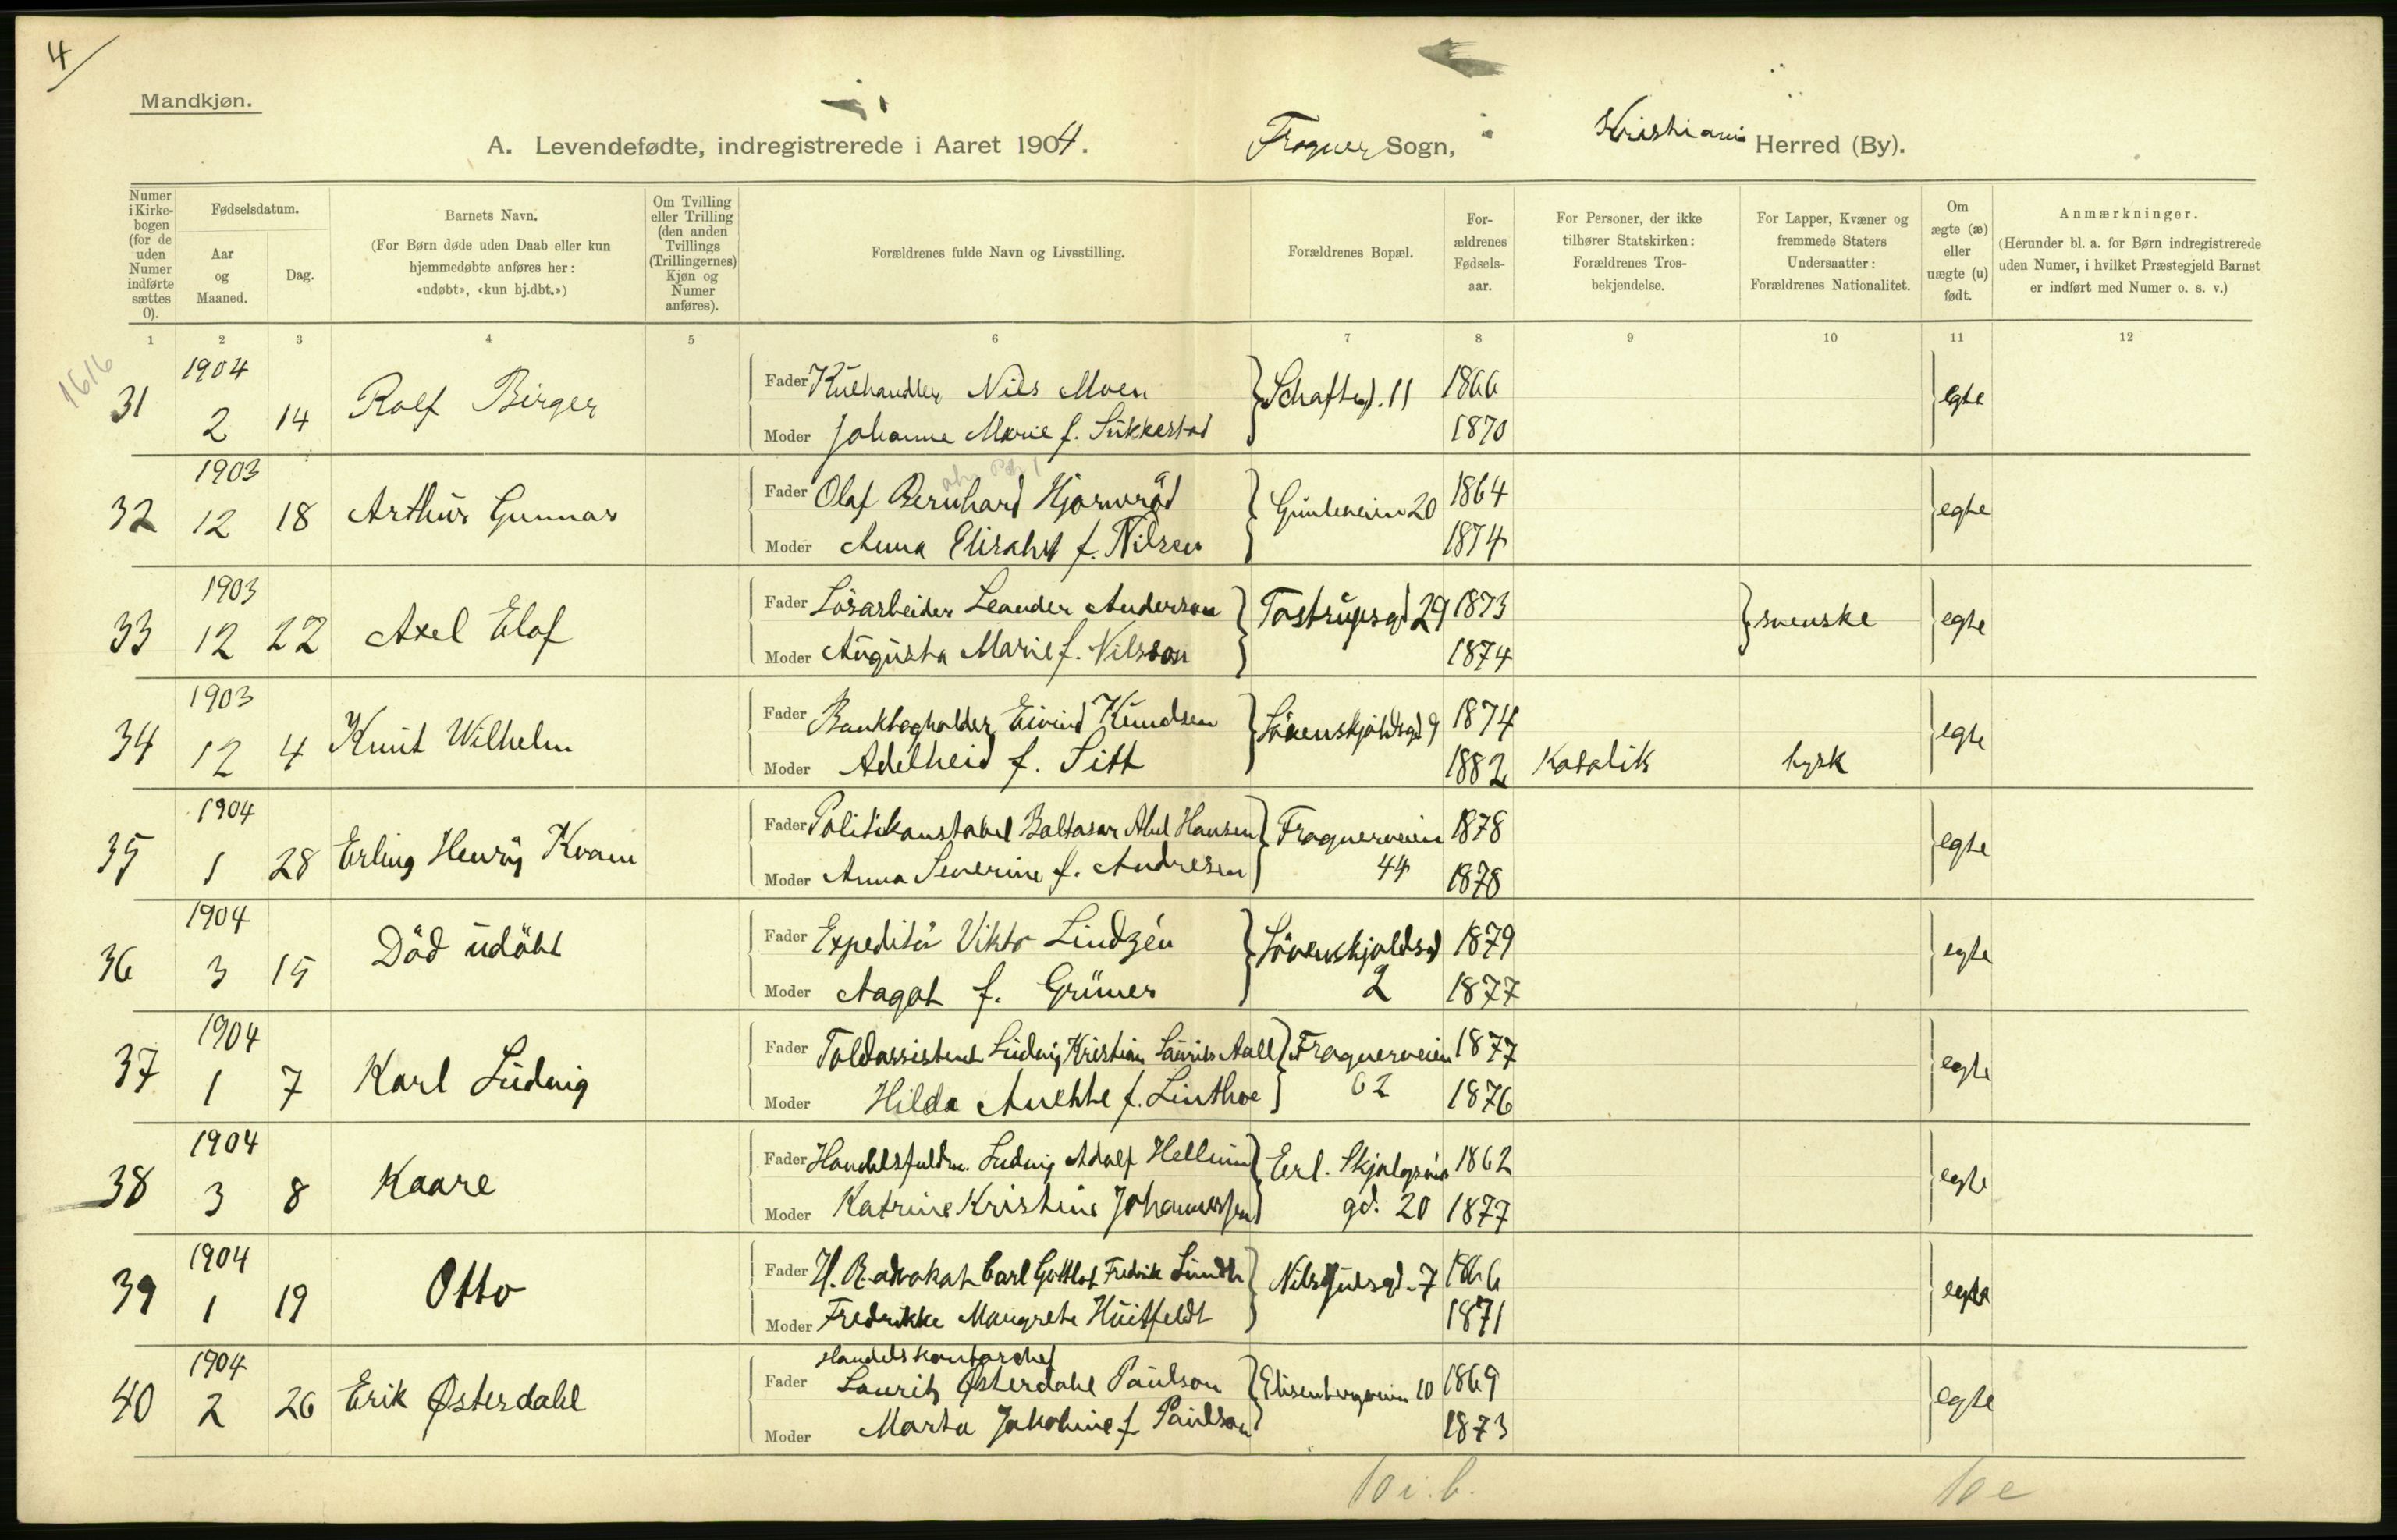 4
Mandkjøn.
A. Levendefødte, indregistrerede i Aaret 1904. Frogner Sogn, Kristiania Herred (By).
Numer i Kirke-bogen (for de uden Numer indførte sættes 0).
Fødselsdatum.
Aar og Maaned.
Dag.
Barnets Navn.
(For Børn døde uden Daab eller kun hjemmedøbte anføres her: «udøbt», «kun hj.dbt.»)
Om Tvilling eller Trilling (den anden Tvillings (Trillingernes) Kjøn og Numer anføres).
Forældrenes fulde Navn og Livsstilling.
Forældrenes Bopæl.
For-ældrenes Fødsels-aar.
For Personer, der ikke tilhører Statskirken: Forældrenes Tros-bekjendelse.
For Lapper, Kvæner og fremmede Staters Undersaatter: Forældrenes Nationalitet.
Om ægte (æ) eller uægte (u) født.
Anmærkninger.
(Herunder bl. a. for Børn indregistrerede uden Numer, i hvilket Præstegjeld Barnet er indført med Numer o. s. v.)
1 2 3 4 5 6 7 8 9 10 11 12
1616
31 1904 2 14 Rolf Birger
Fader Kulhandler Nils Moen Schaftsgd. 11 1866 egte
Moder Johanne Marie f. Sükkestad 1870
32 1903 12 18 Arthur Gunnar
Fader Olaf Bernhard Hjornråd Gimleveien 20 1864 egte
Moder Anna Elisabet f. Nilsen 1874
33 1903 12 22 Axel Elof
Fader Løsarbeider Leander Anderson Tostrupsgd 29 1873 svenske egte
Moder Augusta Marie f. Nilsson 1874
34 1903 12 4 Knut Wilhelm
Fader Bankbogholder Eivind Knudsen Løvenskjoldsgd 9 1874 egte
Moder Adelheid f. Sitt 1882 Katolik tysk
35 1904 1 28 Erling Henry Kvam
Fader Politikonstabel Baltasar Abel Hansen Frognerveien 1878 egte
Moder Anna Severine f. Andresen 44 1878
36 1904 3 15 Död udöbt
Fader Expeditör Viktor Lindzén Løvenskjoldsgd 1879 egte
Moder Aagot f. Grüner 2 1877
37 1904 1 7 Karl Ludvig
Fader Toldassistent Ludvig Kristian Laurits Aall Frognerveien 1877 egte
Moder Hilda Anette f. Linthoe 62 1876
38 1904 3 8 Kaare
Fader Handelsfuldm. Ludvig Adolf Hellum Erl. Skjalgsøns 1862 egte
Moder Katrine Kristine Johannessen gd. 20 1877
39 1904 1 19 Otto
Fader H. R. advokat Carl Gottlob Fredrik Lundh Nils Juelsgd. 7 1866 egte
Moder Fredrikke Margrete Huitfeldt 1871
40 1904 2 26 Erik Østerdahl
Handelskontorchef
Fader Laurits Østerdahl Paulson Elisenbergveien 10 1869 egte
Moder Marta Jakobine f. Paulson 1873
10 i. b. 10 e